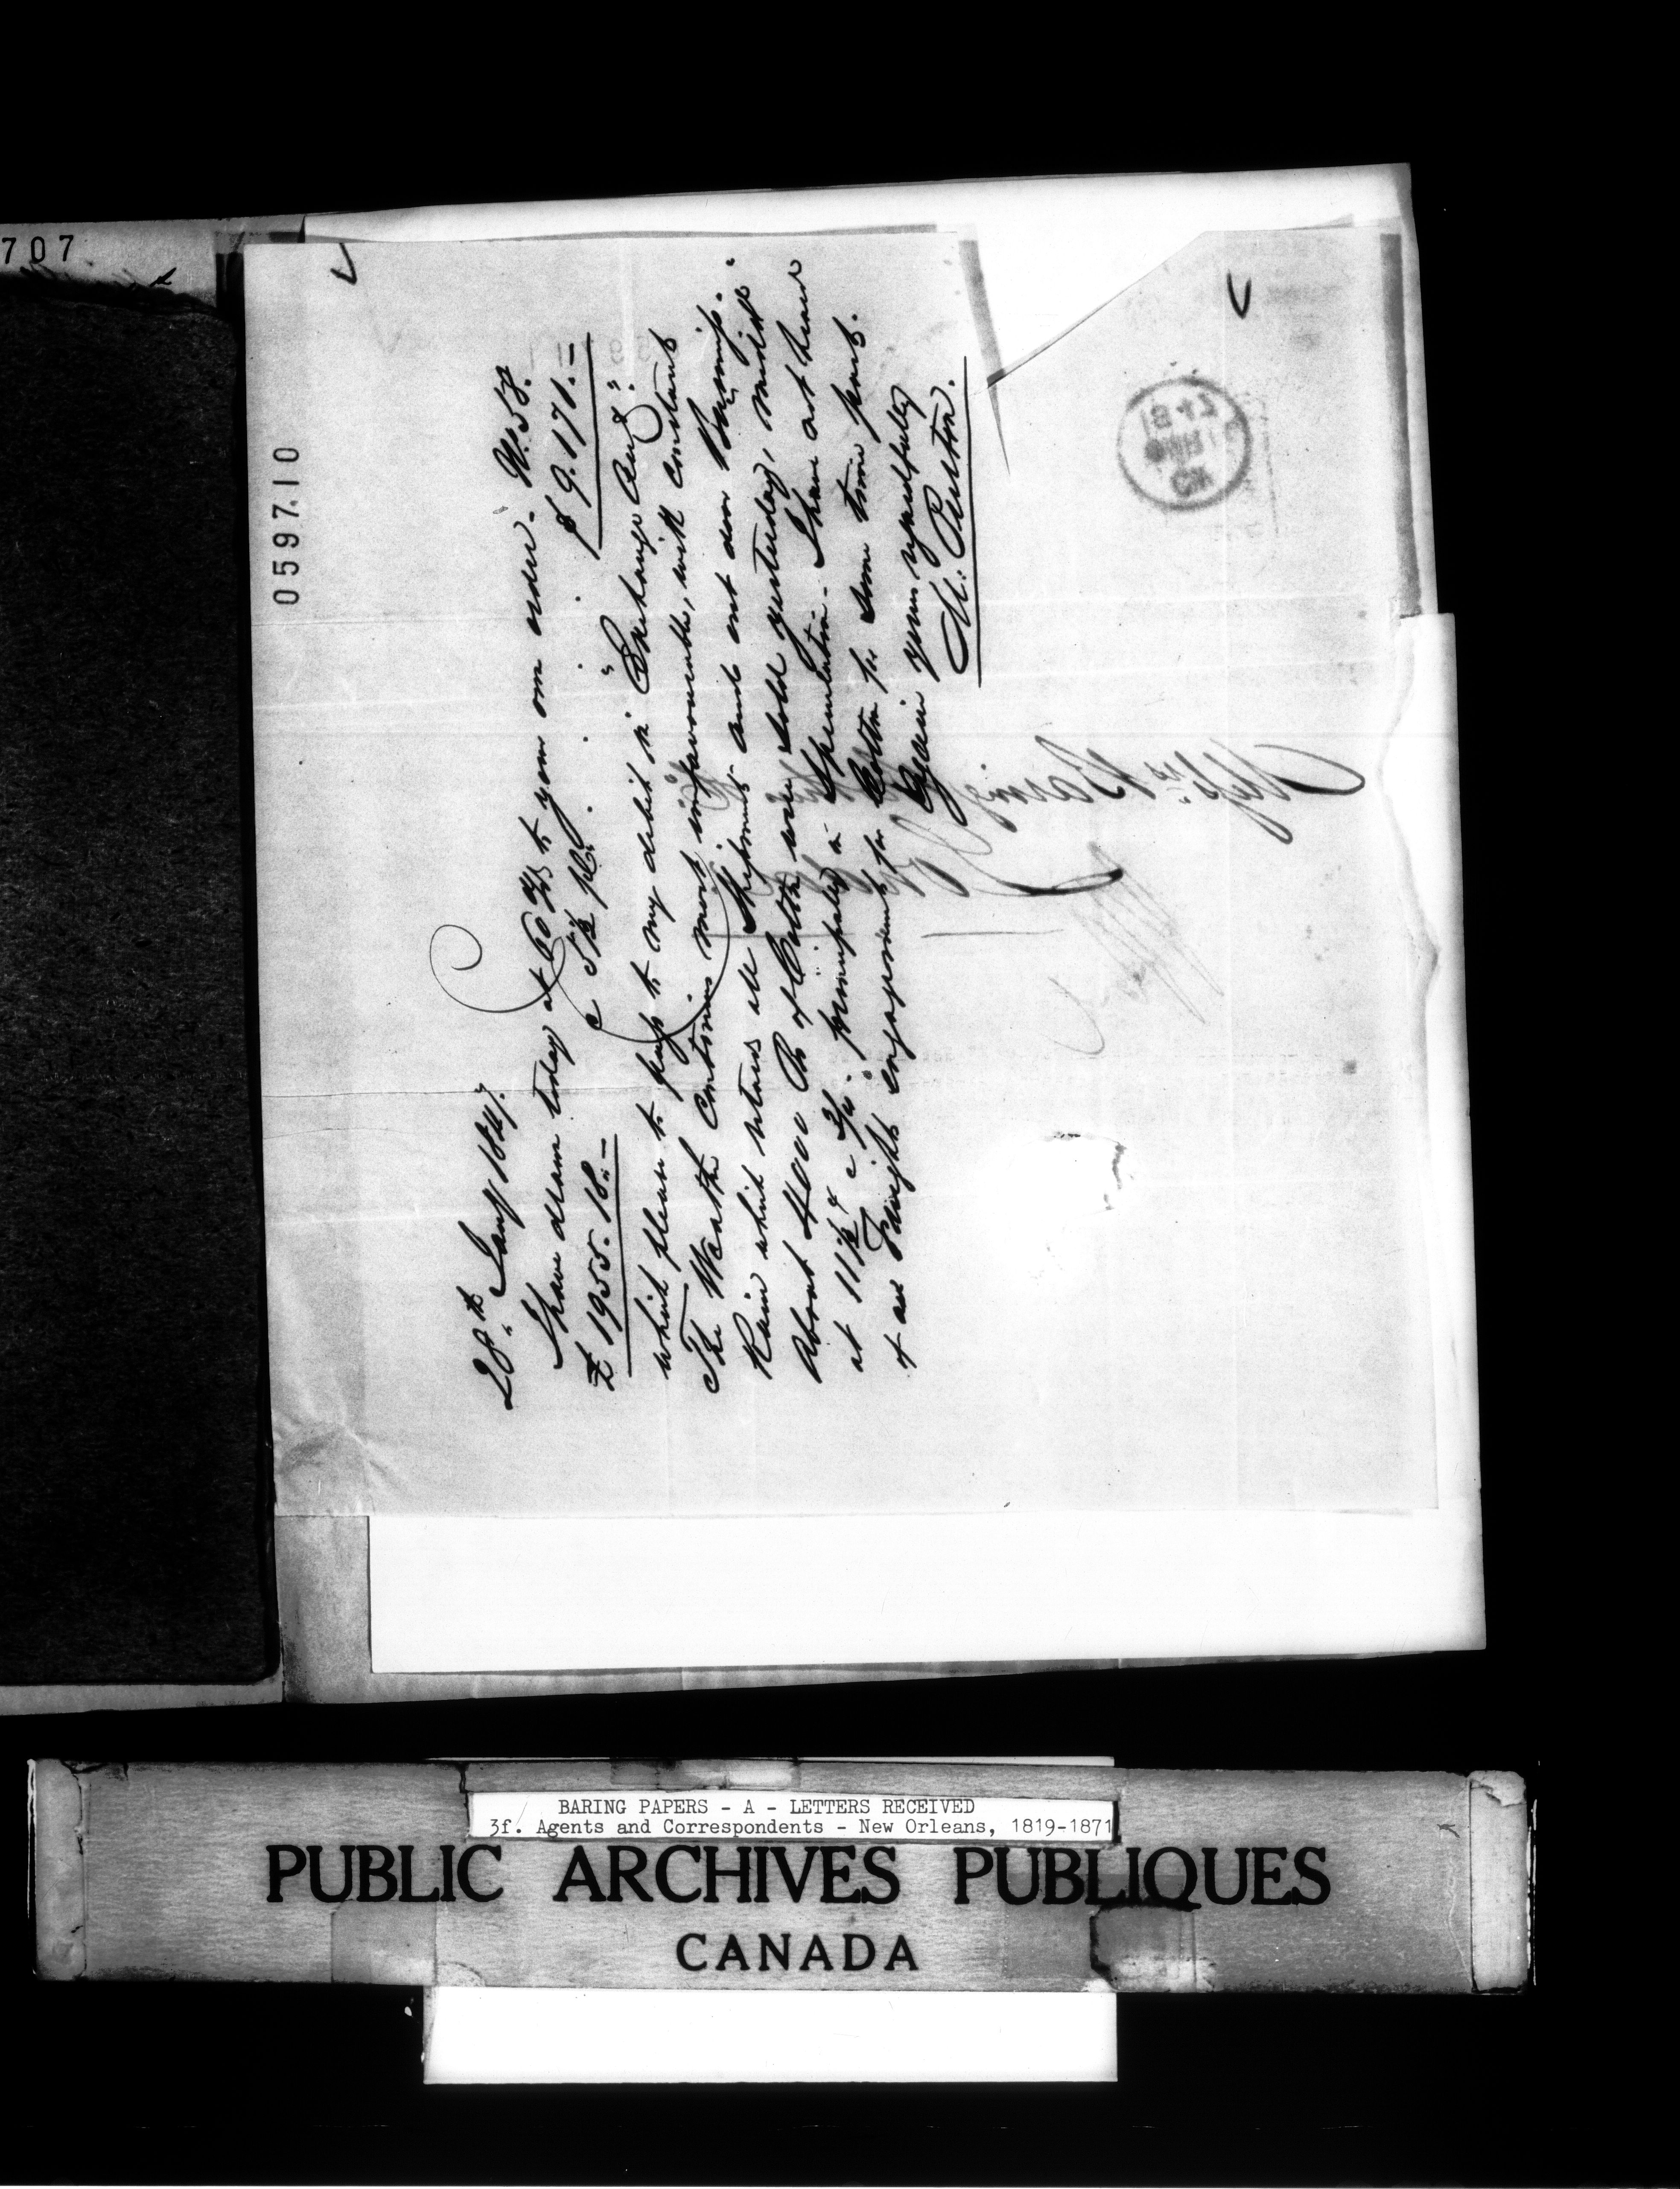 707
059710
28th Jany 1847.
I have drawn today at 60 d/s to your own order - No. 58.
£ 1955. 18. - @ 5½ pct. $ 9.171. =
which please to pass to my debit in "Exchange Acct".
The Weather continues most unfavourable, with constant
Rain which retards all Shipments and out door Business.
About 4000 Bs of Cotton were sold yesterday, middlg
at 11½ @ ¾. principally on Speculation - I have not heard
of any Freight engagements for Cotton for some time past.
Again yours respectfully
M. Preston.
Messrs Baring
BARING PAPERS - A - LETTERS RECEIVED
3f. Agents and Correspondents - New Orleans, 1819-1871
PUBLIC ARCHIVES PUBLIQUES
CANADA